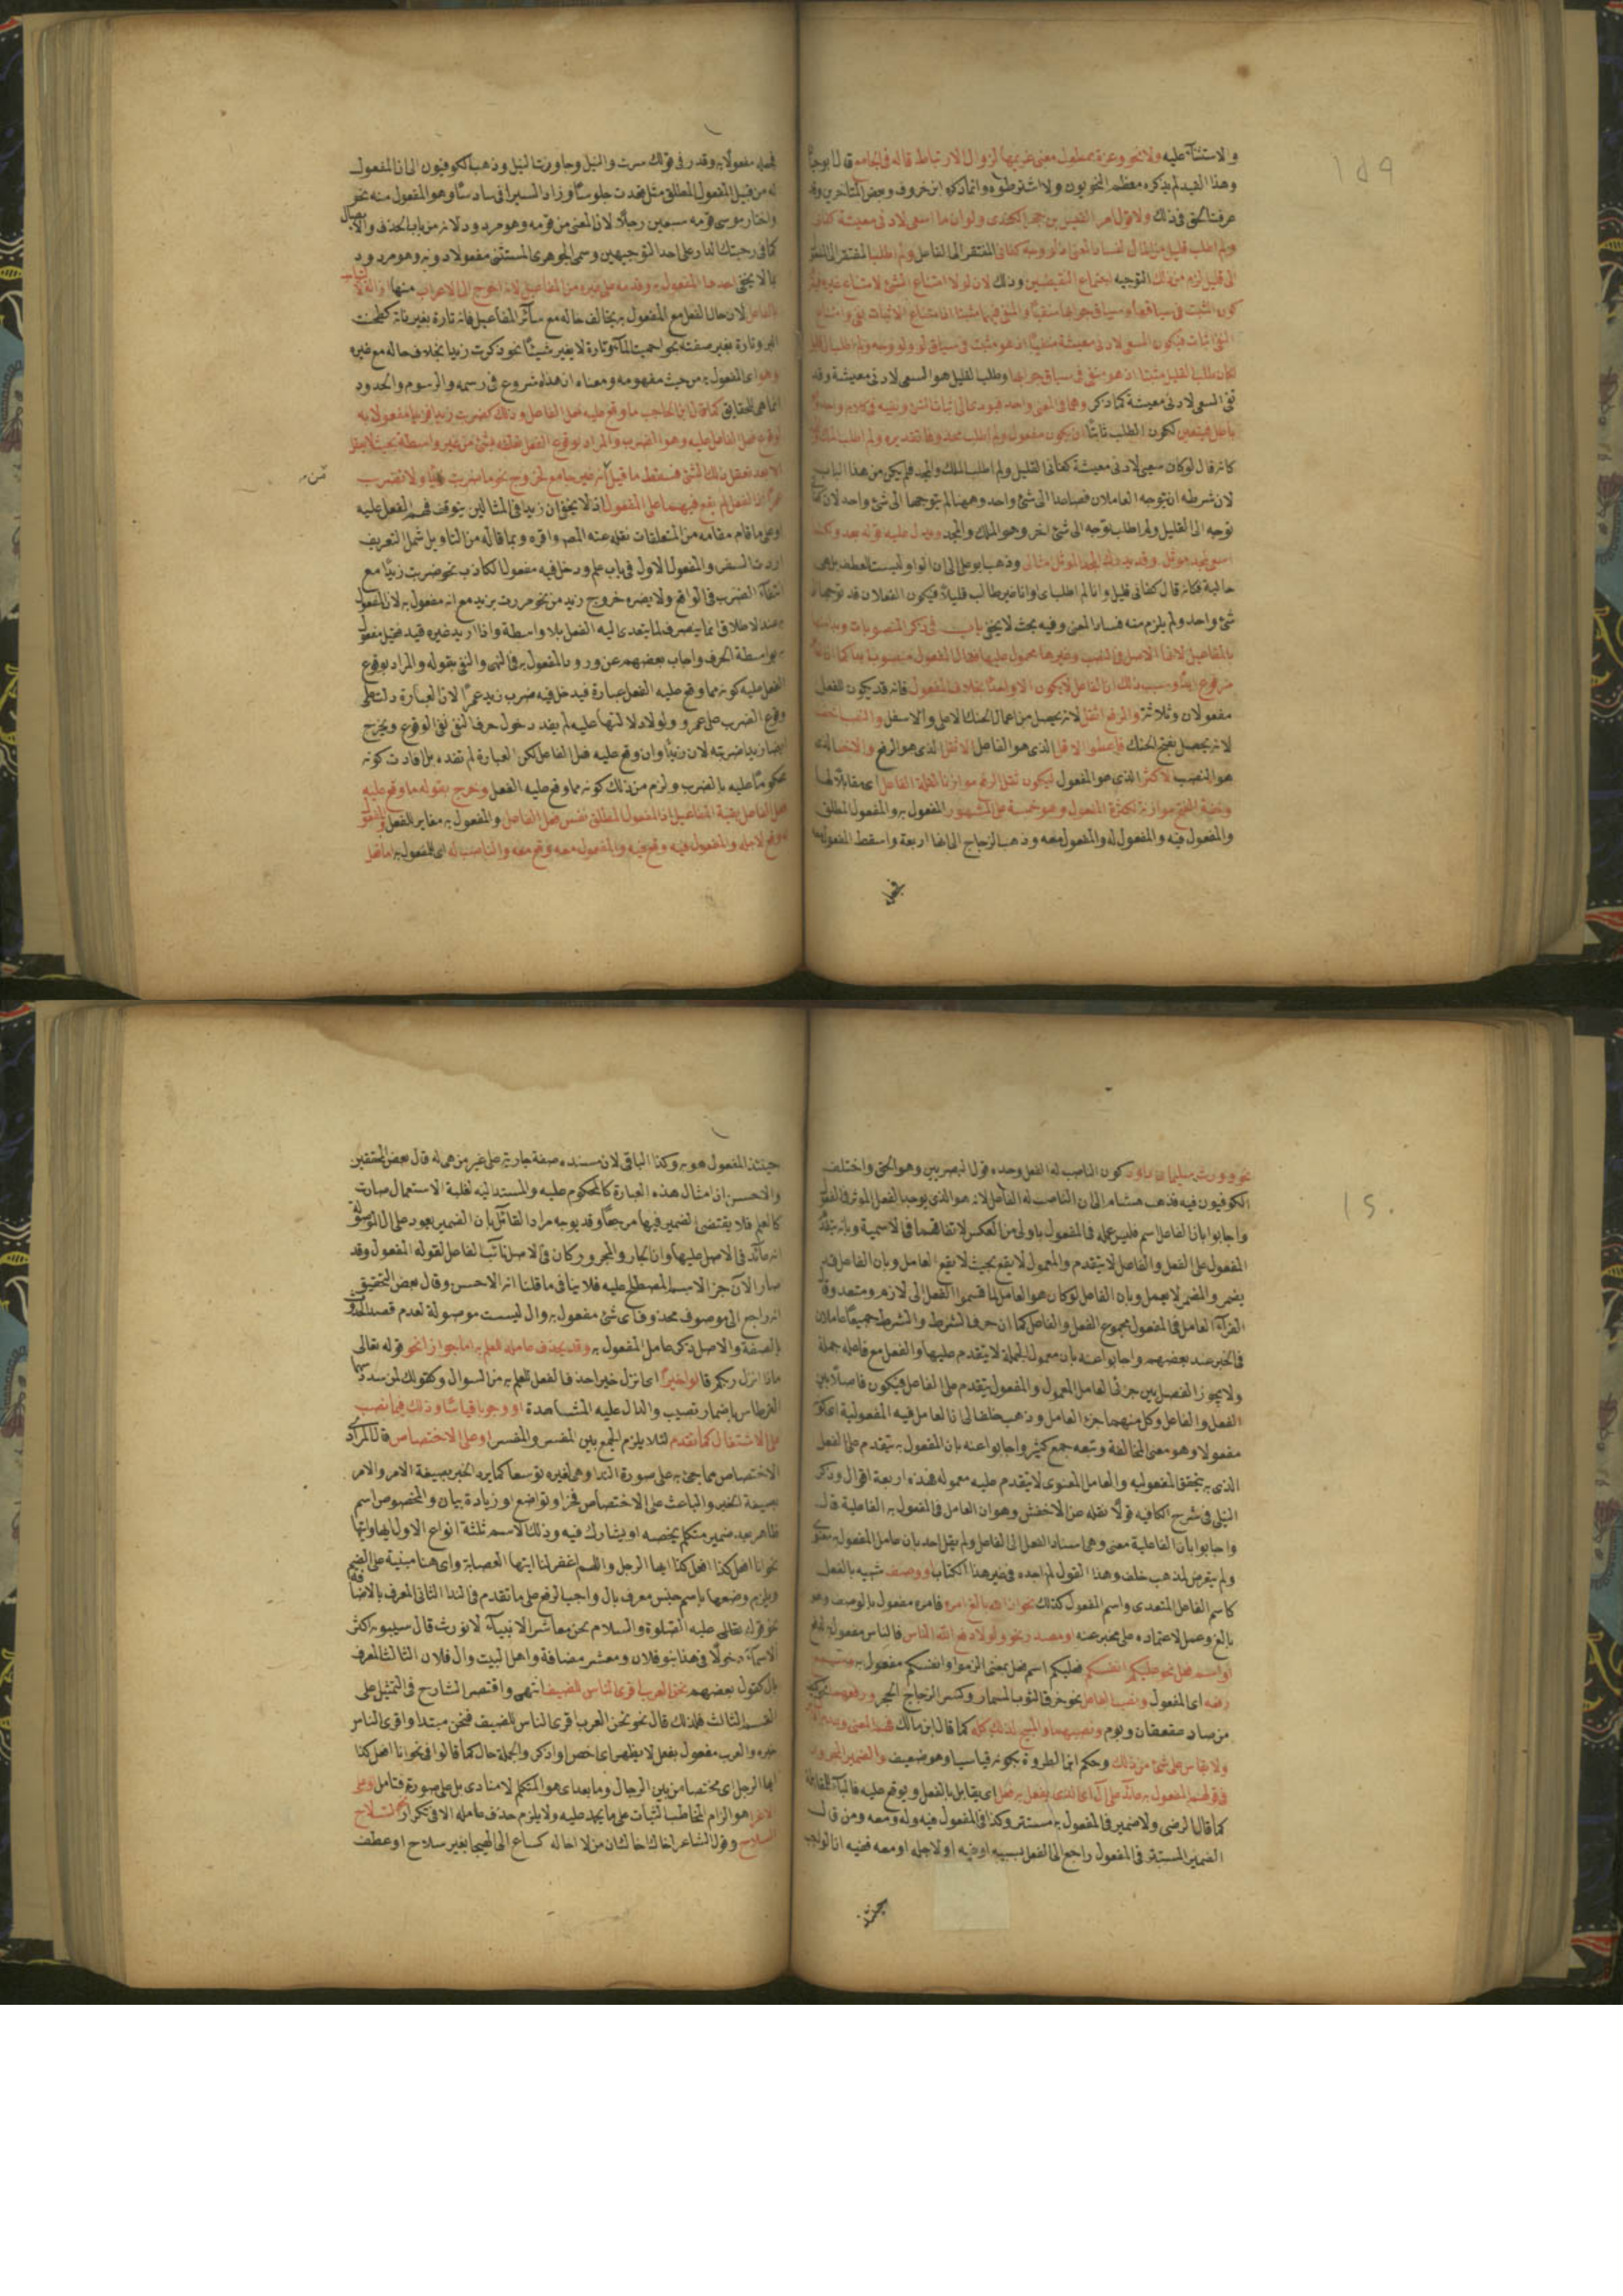 ١٥٩
والاستثناء عليه ولا نحو وعزة ممطول معنى غريمها لزوال الارتباط قاله في الجامع قال ابو حيا
وهذا القيد لم يذكره معظم النحويون ولا اشترطوه وانما ذكره ابن خروف وبعض المتأخرين وقد
عرفت الحق في ذلك ولا قول امرء القيس بن حجر الكندى ولو ان ما اسعى لادنى معيشة كفانى
ولم اطلب قليل من المال لفساد المعنى اذ لو وجه كفانى المفتقر الى الفاعل ولم اطلب المفتقر الى المفعول
الى قليل لزم من ذلك التوجيه اجتماع النقيضين وذلك لان لو لامتناع الشئ لامتناع غيره
كون المثبت في سياقها وسياق جوابها منفيا والمنفى فيها مثبتا اذ امتناع الاثبات نفى وامتناع
النفى اثبات فيكون السعى لادنى معيشة منفيا اذ هو مثبت في سياق لو ولو وجه ولم اطلب الى قليل
لكان طلب القليل مثبتا اذ هو منفى في سياق جوابها وطلب القليل هو السعى لادنى معيشة وقد
نفى السعى لادنى معيشة كما ذكر وهما في المعنى واحد فيؤدى الى اثبات الشئ ونفيه في كلام واحد وانه
باطل فيتعين لكون الطلب ثابتا ان يكون مفعول ولم اطلب محذوفا تقديره ولم اطلب الملك
كانه قال لو كان سعيى لادنى معيشة كفانى القليل ولم اطلب الملك والمجد فلم يكن من هذا الباب
لان شرطه ان يتوجه العاملان فصاعدا الى شئ واحد وههنا لم يتوجها الى شئ واحد لان كفانى
توجه الى القليل ولم اطلب توجه الى شئ اخر وهو الملك والمجد ويدل عليه قوله بعد ولكنما
اسعى لمجد مؤثل وقد يدرك المجد المؤثل امثالى وذهب ابو على الى ان الواو ليست للعطف بل هى
حالية فكانه قال كفانى قليل وانا لم اطلب اى وانا غير طالب قليلا فيكون الفعلان قد توجها الى
شئ واحد ولم يلزم منه فساد المعنى وفيه بحث لا يخفى باب في ذكر المنصوبات وبدأ فيه
بالمفاعيل لانها الاصل في النصب وغيرها محمول عليها فقال المفعول منصوب ابدا كما ان الفاعل
مرفوع ابدا وسبب ذلك ان الفاعل لا يكون الا واحدا بخلاف المفعول فانه قد يكون للفعل
مفعولان وثلاثة والرفع اثقل لانه يحصل من اعمال الحنك الاعلى والاسفل والنصب اخف
لانه يحصل بفتح الحنك فاعطوا الاقل الذى هو الفاعل الاثقل الذى هو الرفع والاخف الذى
هو النصب للاكثر الذى هو المفعول ليكون ثقل الرفع موازنا لقلة الفاعل اى مقابلا لها
وخفة الفتح موازنة لكثرة المفعول وهو خمسة على المشهور المفعول به والمفعول المطلق
والمفعول فيه والمفعول له والمفعول معه وذهب الزجاج الى انها اربعة واسقط المفعول معه
فجعله
فجعله مفعولا به وقدر في قولك سرت والنيل وجاوزت النيل وذهب الكوفيون الى ان المفعول
له من قبيل المفعول المطلق مثل قعدت جلوسا وزاد السيرافى سادسا وهو المفعول منه نحو
واختار موسى قومه سبعين رجلا لان المعنى من قومه وهو مردود لانه من باب الحذف والايصال
كما في رحبتك الدار على احد التوجيهين وسمى الجوهرى المستثنى مفعولا دونه وهو مردود
بما لا يخفى احدها المفعول به وقدمه على غيره من المفاعيل لانه احوج الى الاعراب منها
بالفاعل لان حال الفعل مع المفعول به يخالف حاله مع سائر المفاعيل فانه تارة يغير ذاته كطحنت
البر وتارة يغير صفته نحو احميت الماء وتارة لا يغير شيئا نحو ذكرت زيدا بخلاف حاله مع غيره
وهو اى المفعول به من حيث مفهومه ومعناه ان هذا شروع في رسمه والرسوم والحدود
انما هى للحقايق كما قال ابن الحاجب ما وقع عليه فعل الفاعل وذلك كضربت زيدا فزيدا مفعول به
لوقوع فعل الفاعل عليه وهو الضرب والمراد بوقوع الفعل تعلقه بشئ من غير واسطة بحيث لا يعقل
الا بعد تعقل ذلك الشئ فسقط ما قيل انه غير جامع لخروج نحو ما ضربت زيدا ولا تضرب
عمرا اذ الفعل لم يقع فيهما على المفعول اذ لا يخفى ان زيدا في المثالين يتوقف فهم الفعل عليه
او على ما قام مقامه من المتعلقات نقله عنه المص واقره وبما قاله من التاويل شمل التعريف
اردت السفر والمفعول الاول في باب علم ودخل فيه مفعول الكاذب نحو ضربت زيدا مع
انتفاء الضرب في الواقع ولا يضره خروج زيد من نحو مررت بزيد مع انه مفعول به لان المفعول
به عند الاطلاق انما ينصرف لما يتعدى اليه الفعل بلا واسطة واذا اريد غيره قيد فقيل مفعول
به بواسطة الحرف واجاب بعضهم عن ورود المفعول به في النهى والنفى بقوله والمراد بوقوع
الفعل عليه كونه مما وقع عليه الفعل عبارة فيدخل فيه ضرب زيد عمرا لان العبارة دلت على
وقوع الضرب على عمرو ولولا دلالتها عليه لم يفد دخول حرف النفى نفى الوقوع ويخرج
ايضا زيد ضربته لان زيدا وان وقع عليه فعل الفاعل لكن العبارة لم تفده بل افادت كونه
محكوما عليه بالضرب ولزم من ذلك كونه مما وقع عليه الفعل وخرج بقوله ما وقع عليه
فعل الفاعل بقية المفاعيل اذ المفعول المطلق نفس فعل الفاعل والمفعول به مغاير للفعل والمفعول
له وقع لاجله والمفعول فيه وقع فيه والمفعول معه وقع معه والناصب له اى للمفعول به اما فعل
١٥٠
نحو وورث سليمان داود كون الناصب له الفعل وحده قول البصريين وهو الحق واختلف
الكوفيون فيه فذهب هشام الى ان الناصب له الفاعل لانه هو الذى يوجد الفعل المؤثر في المفعول
واجابوا بان الفاعل اسم فليس عمله في المفعول باولى من العكس لاتفاقهما في الاسمية وبانه يتقدم
المفعول على الفعل والفاعل لا يتقدم والمعمول لا يقع بحيث لا يقع العامل وبان الفاعل قد
يضمر والمضمر لا يعمل وبان الفاعل لو كان هو العامل لما قسموا الفعل الى لازم ومتعد وقال
الفراء العامل في المفعول مجموع الفعل والفاعل كما ان حرف الشرط والشرط جميعا عاملان
في الخبر عند بعضهم واجابوا عنه بان معمول الجملة لا يتقدم عليها والفعل مع فاعله جملة
ولا يجوز الفصل بين جزئى العامل المعمول والمفعول يتقدم على الفاعل فيكون فاصلا بين
الفعل والفاعل وكل منهما جزء العامل وذهب خلف الى ان العامل فيه المفعولية اى كونه
مفعولا وهو معنى المخالفة وتبعه جمع كثير واجابوا عنه بان المفعول به يتقدم على الفعل
الذى به يتحقق المفعوليه والعامل المعنوى لا يتقدم عليه معموله فهذه اربعة اقوال وذكر
النيلى في شرح الكافيه قولا نقله عن الاخفش وهو ان العامل في المفعول به الفاعلية قال
واجابوا بان الفاعلية معنى وهى اسناد الفعل الى الفاعل ولم يقل احد بان عامل المفعول به معنوى
ولم يتعرض لمذهب خلف وهذا القول لم اجده في غير هذا الكتاب او وصف شبيه بالفعل
كاسم الفاعل المتعدى واسم المفعول كذلك نحو ان الله بالغ امره فامره مفعول بالوصف وهو
بالغ وعمل لاعتماده على مخبر عنه او مصدر نحو ولولا دفع الله الناس فالناس مفعول لدفع
او اسم فعل نحو عليكم انفسكم فعليكم اسم فعل بمعنى الزموا وانفسكم مفعول به وسمع
رفعه اى المفعول ونصب الفاعل نحو خرق الثوب المسمار وكسر الزجاج الحجر ورفعهما نحو
من صاد عقعقان وبوم ونصبهما والمبيح لذلك كله كما قال ابن مالك فهم المعنى وعدم
ولا يقاس على شئ من ذلك وحكم ابن الطراوة بكونه قياسيا وهو ضعيف والضمير المجرور
في قولهم المفعول به عائد على ال اى الذى يفعل به فعل اى يقابل بالفعل ويوقع عليه فالباء للمقابلة
كما قال الرضى ولا ضمير في المفعول به مستتر وكذا في المفعول فيه وله ومعه ومن قال
الضمير المستتر في المفعول راجع الى الفعل بسببه او فيه او لاجله او معه ففيه ان الواجب
حينئذ
حينئذ المفعول هو به وكذا الباقى لان مسنده صفة جارية على غير من هى له قال بعض المحققين
والاحسن ان امثال هذه العبارة كالمحكوم عليه والمسند اليه لغلبة الاستعمال صارت
كالعلم فلا يقتضى الضمير فيها مرجعا وقد يوجه مراد القائل بان الضمير يعود على ال الموصولة
انه عائد في الاصل عليها وان الجار والمجرور كان في الاصل نائب الفاعل لقوله المفعول وقد
صار الآن جزء الاسم المصطلح عليه فلا ينافى ما قلنا انه الاحسن وقال بعض التحقيق
انه راجع الى موصوف محذوف اى شئ مفعول به وال ليست موصولة لعدم قصد الحدوث
بالصفة والاصل ذكر عامل المفعول به وقد يحذف عامله للعلم به اما جوازا نحو قوله تعالى
ماذا انزل ربكم قالوا خيرا اى انزل خيرا حذف الفعل للعلم به من السوال وكقولك لمن سدد سهما
القرطاس باضمار تصيب والدال عليه المشاهدة او وجوبا قياسا وذلك فيما نصب
على الاشتغال كما تقدم لئلا يلزم الجمع بين المفسر والمفسر او على الاختصاص قال المرادى
الاختصاص مما جئ به على صورة الندا وهى لغيره توسعا كما يرد الخبر بصيغة الامر والامر
بصيغة الخبر والباعث على الاختصاص فخر او تواضع او زيادة بيان والمخصوص اسم
ظاهر بعد ضمير متكلم يخصه او يشارك فيه وذلك الاسم ثلثة انواع الاول ايها وايتها
نحو انا افعل كذا ايها الرجل واللهم اغفر لنا ايتها العصابة واى هنا مبنية على الضم
ويلزم وصفها باسم جنس معرف بال واجب الرفع على ما تقدم في الندا الثانى المعرف بالاضافة
نحو قوله تعالى عليه الصلوة والسلام نحن معاشر الانبياء لا نورث قال سيبويه اكثر
الاسماء دخولا في هذا بنو فلان ومعشر مضافة واهل البيت وال فلان الثالث المعرف
بال كقول بعضهم نحن العرب اقرى الناس للضيف انتهى واقتصر الشارح في التمثيل على
القسم الثالث فلذلك قال نحو نحن العرب اقرى الناس للضيف فنحن مبتدا واقرى الناس
خبره والعرب مفعول بفعل لا يظهر اى اخص او اذكر والجملة حال كما قالوا في نحو انا افعل كذا
ايها الرجل اى مختصا من بين الرجال وما بعد اى هو المتكلم لا منادى بل على صورته فتامل وعلى
الاغراء هو الزام المخاطب الثبات على ما يحمد عليه ولا يلزم حذف عامله الا في تكرار نحو السلاح
السلاح وقول الشاعر اخاك اخاك ان من لا اخا له كساع الى الهيجا بغير سلاح او عطف